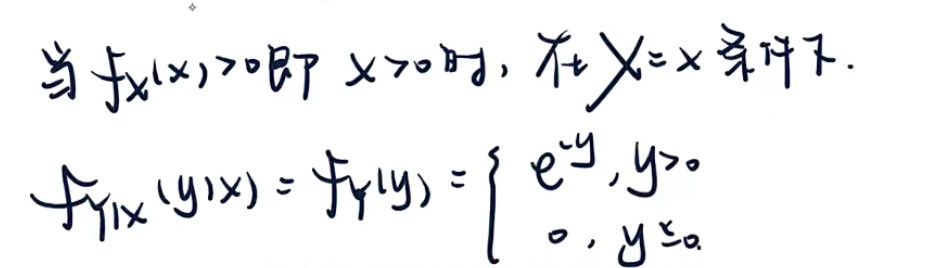 当 f_X(x)>0即 x>0时, 在 X=x 条件下.
f_{Y|X}(y|x) = f_Y(y) = { e^{-y}, y>0
0, y≤0.